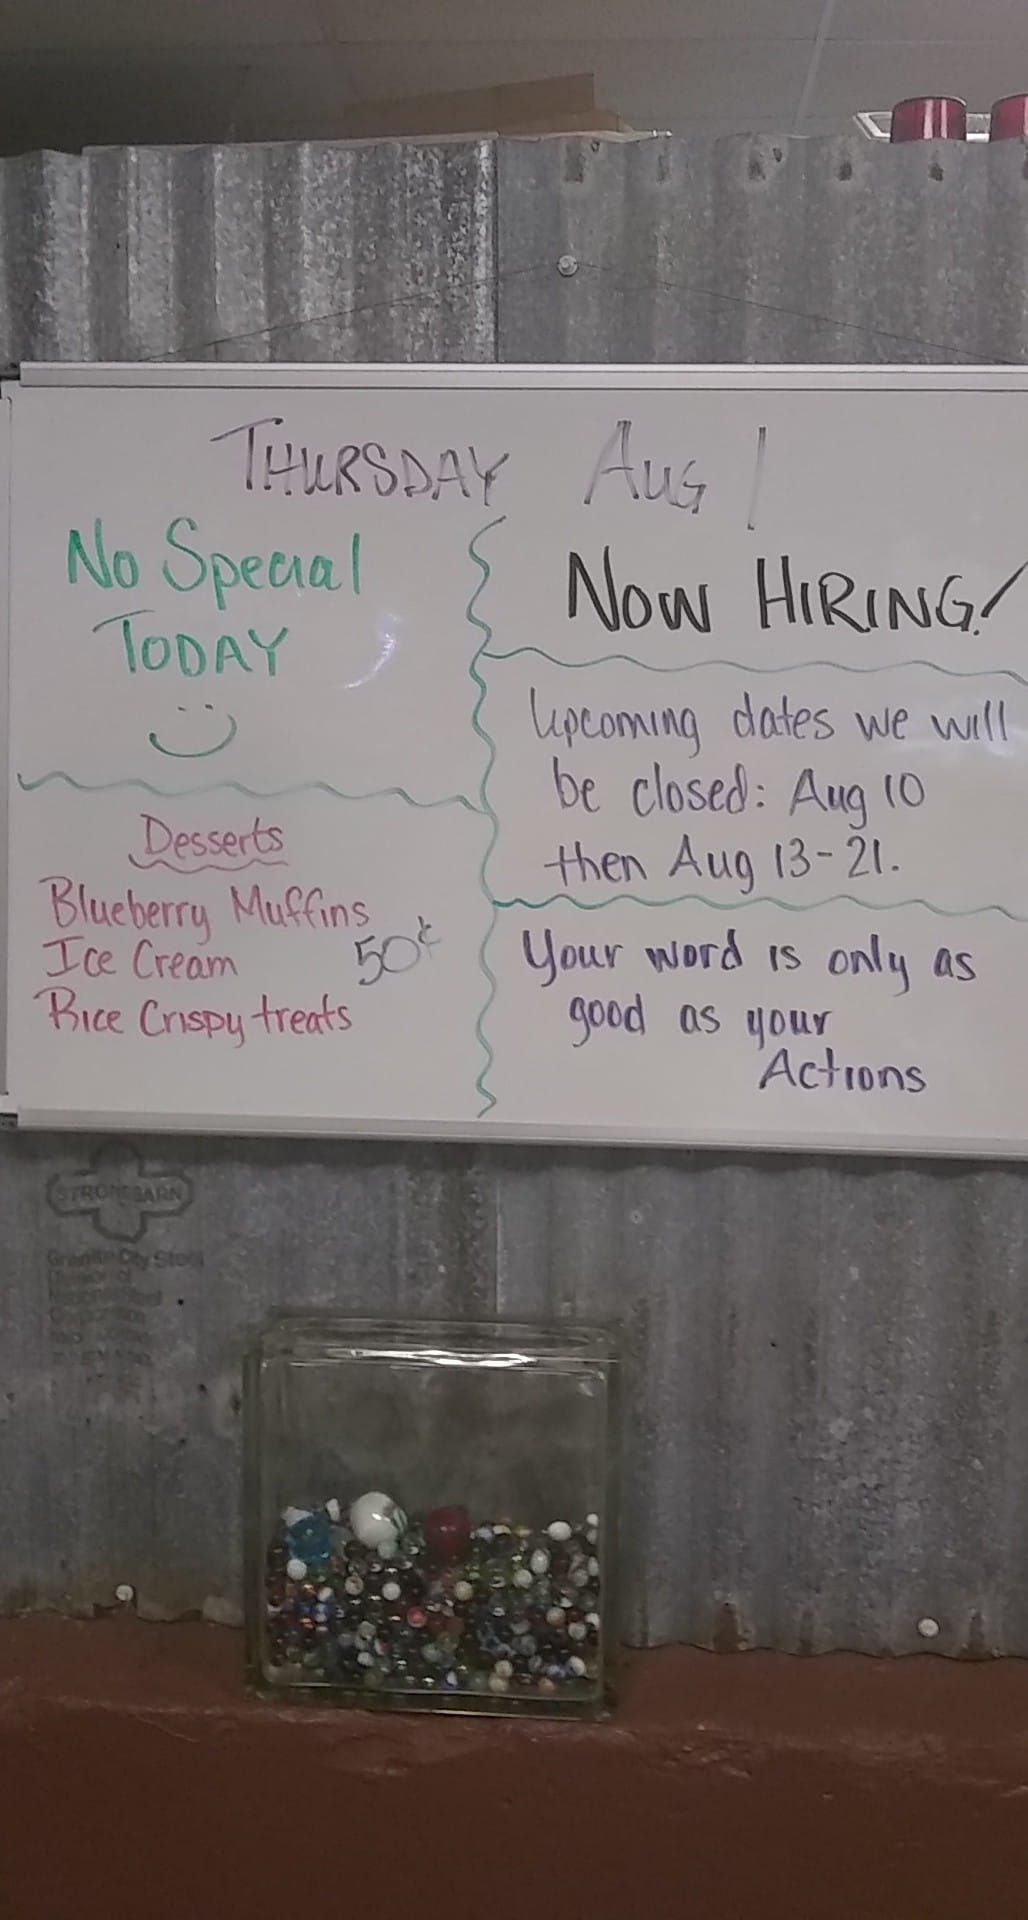 THURSDAY AUG 1
No Special
TODAY
Desserts
Blueberry Muffins
Ice Cream 50¢
Rice Crispy treats
NOW HIRING!
Upcoming dates we will
be closed: Aug 10
then Aug 13-21.
Your word is only as
good as your
Actions
STRONGBARN
Granite City Steel
Division of